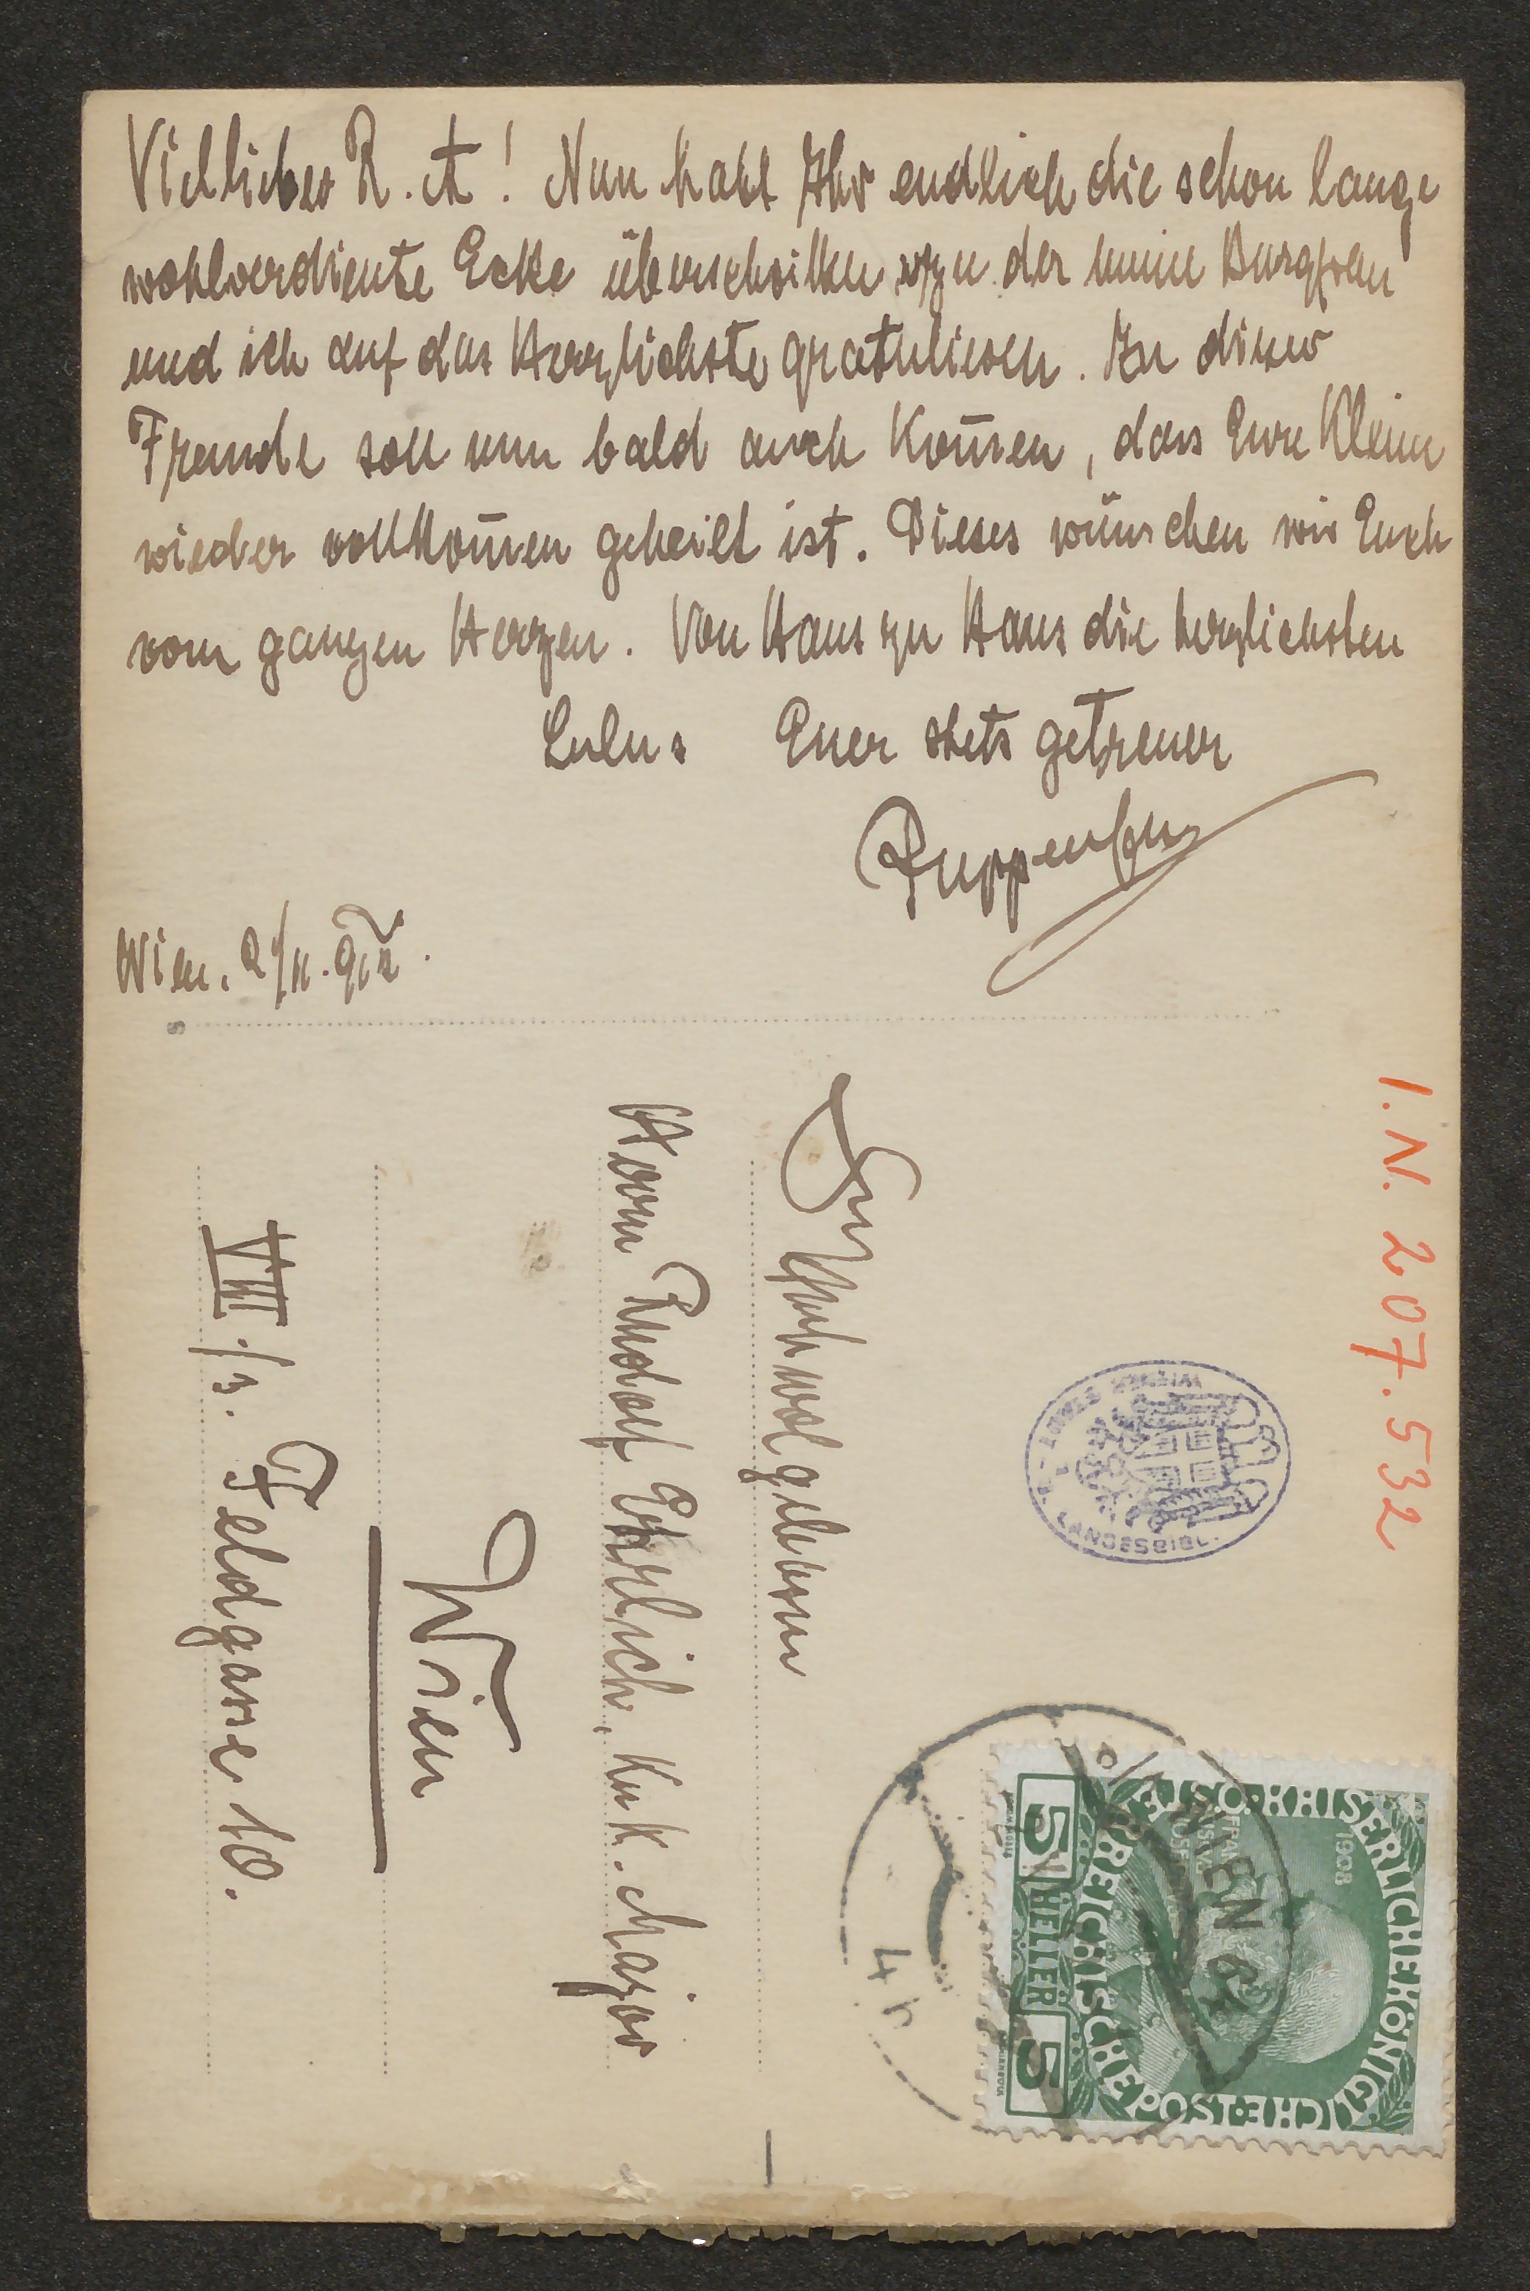 Viellieber R. A! Nun habt Ihr endlich die schon lange
wohlverdiente Ecke überschritten, wozu der meine Burgfrau
und ich auf das Herzlichste gratulieren. Zu dieser
Freude soll nun bald auch kom̅en, dass Eure Kleine
wieder vollkom̅en geheilt ist. Dieses wünschen wir Euch
vom ganzen Herzen. Von Haus zu Haus die herzlichsten
Lulus Euer stets getreuer
Wien,
I. N. 207.532
Hochwolgeboren
Herrn Rudolf Ehrlich, k u k. Major
Wien
VIII./3. Feldgasse 10.
LANDESBIBL.
KAISERLICHE KÖNIGLICHE POST
ÖSTERREICHISCHE
1908
5 HELLER 5
WIEN